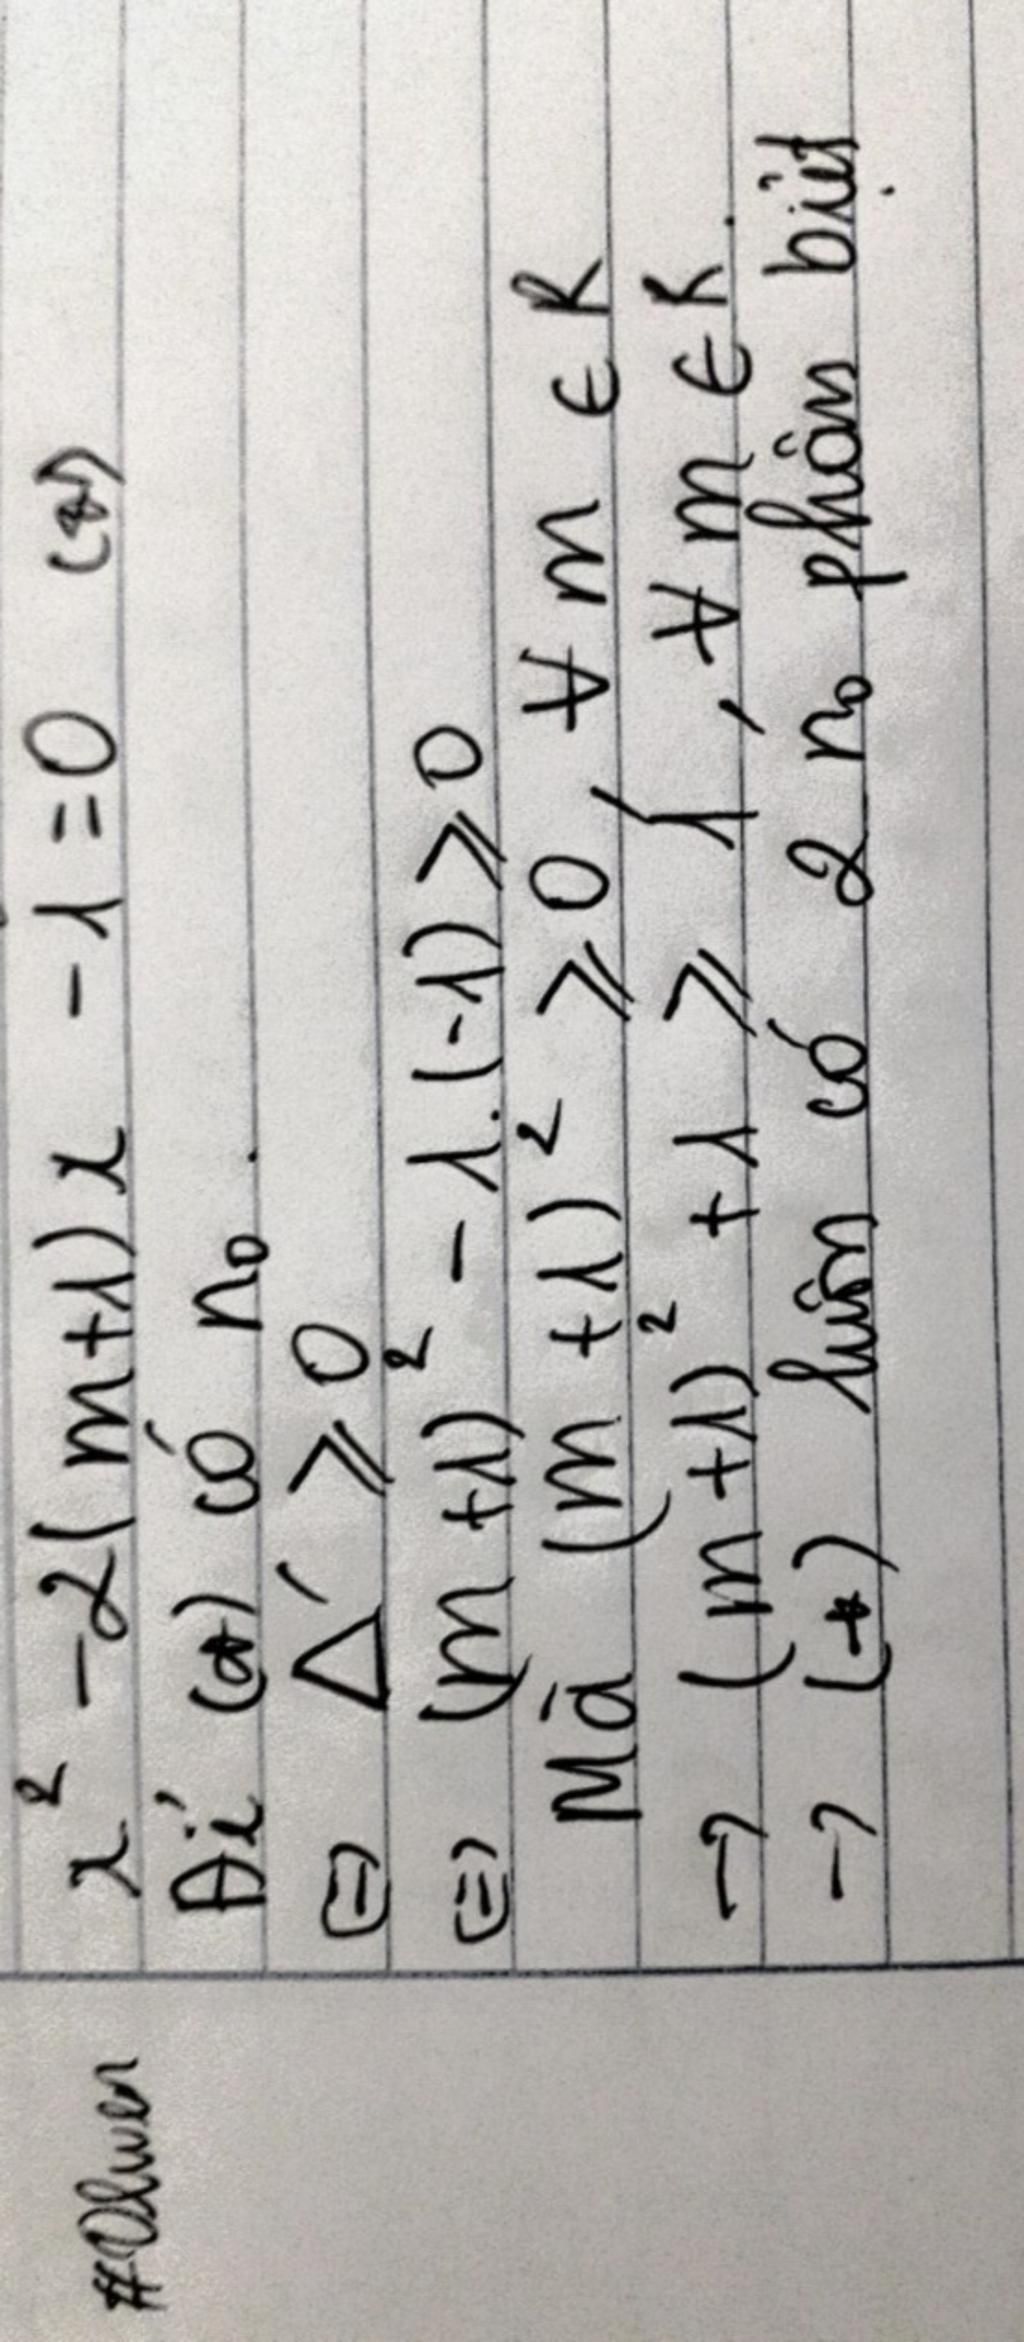 #Oliver
x² - 2(m+1)x - 1 = 0 (*)
Để (*) có n₀.
⇔ Δ' ⩾ 0
⇔ (m+1)² - 1.(-1) ⩾ 0
Mà (m+1)² ⩾ 0, ∀ m ∈ R
→ (m+1)² + 1 ⩾ 1, ∀ m ∈ R.
→ (*) luôn có 2 n₀ phân biệt